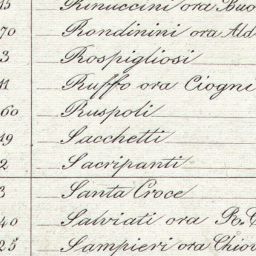 15 Rinuccini ora Buo
70 Rondinini ora Ald
3 Rospigliosi
11 Ruffo ora Ciogni
60 Ruspoli
19 Sacchetti
2 Sacripanti
3 Santa Croce
40 Salviati ora R. C
25 Sampieri ora Chiov